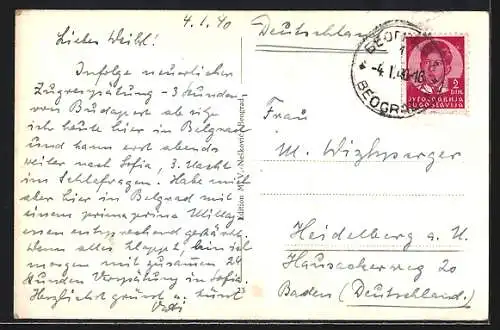 4.1.40
Liebes Weibl!
Infolge neuerlicher
Zugverspätung - 3 Stunden
von Budapest ab sitze
ich heute hier in Belgrad
und kann erst abends
weiter nach Sofia, 3. Nacht
im Schlafwagen. Habe mich
aber hier in Belgrad mit
einem prima prima Mittag
essen entsprechend gestärkt.
Wenn alles klappt, bin ich
morgen mit zusammen 24
Stunden Verspätung in Sofia.
Herzlichst grüsst u. küsst
Vati
Edition M.V. Nešković, Beograd
23
Deutschland
БЕОГРАД
-4.I.40-16
BEOGRAD
2
DIN.
ЈУГОСЛАВИЈА
JUGOSLAVIJA
Frau
M.
Heidelberg a. N.
Hausackerweg 20
Baden (Deutschland.)